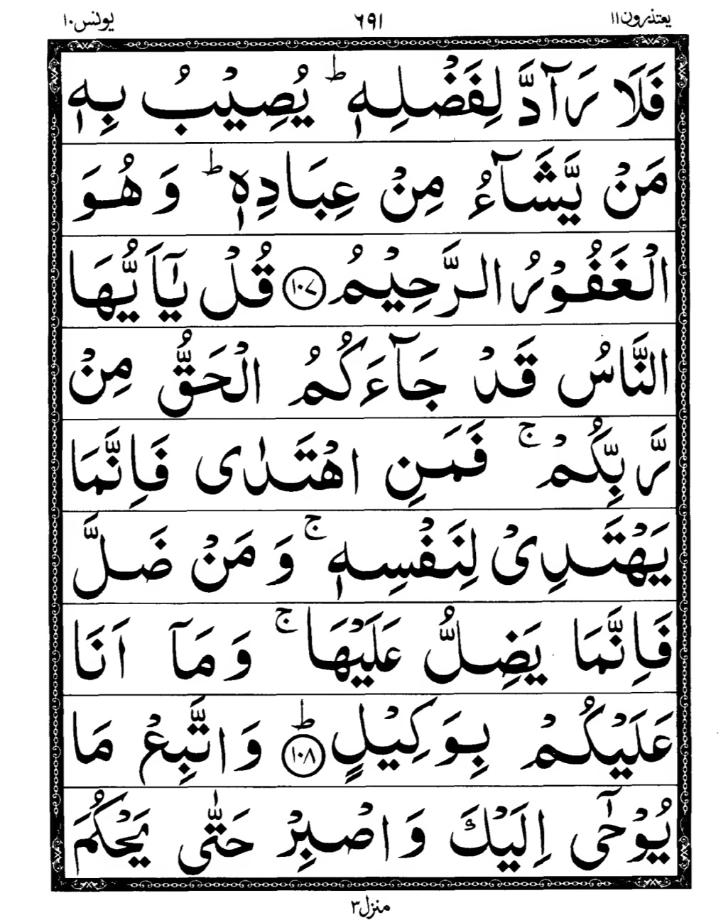 یعتذرون١١ ٦٩١ یونس١٠
فَلَا رَآدَّ لِفَضْلِهٖ ؕ يُصِيْبُ بِهٖ
مَنْ يَّشَآءُ مِنْ عِبَادِهٖ ؕ وَ هُوَ
الْغَفُوْرُ الرَّحِيْمُ ﴿١٠٧﴾ قُلْ يٰۤاَيُّهَا
النَّاسُ قَدْ جَآءَكُمُ الْحَقُّ مِنْ
رَّبِّكُمْ ۚ فَمَنِ اهْتَدٰى فَاِنَّمَا
يَهْتَدِىْ لِنَفْسِهٖ ۚ وَ مَنْ ضَلَّ
فَاِنَّمَا يَضِلُّ عَلَيْهَا ۚ وَ مَاۤ اَنَا
عَلَيْكُمْ بِوَكِيْلٍ ؕ ﴿١٠٨﴾ وَ اتَّبِعْ مَا
يُوْحٰۤى اِلَيْكَ وَ اصْبِرْ حَتّٰى يَحْكُمَ
منزل٣